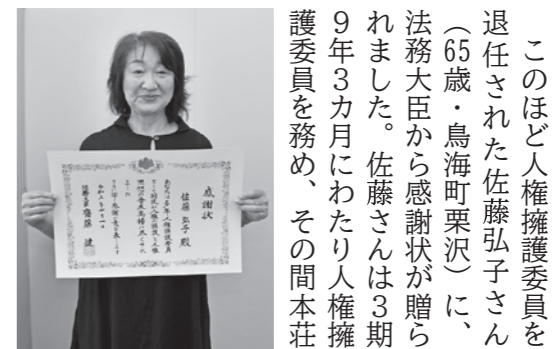 このほど人権擁護委員を
退任された佐藤弘子さん
（65歳・鳥海町栗沢）に、
法務大臣から感謝状が贈ら
れました。佐藤さんは３期
９年３カ月にわたり人権擁
護委員を務め、その間本荘
感謝状
佐藤弘子 殿